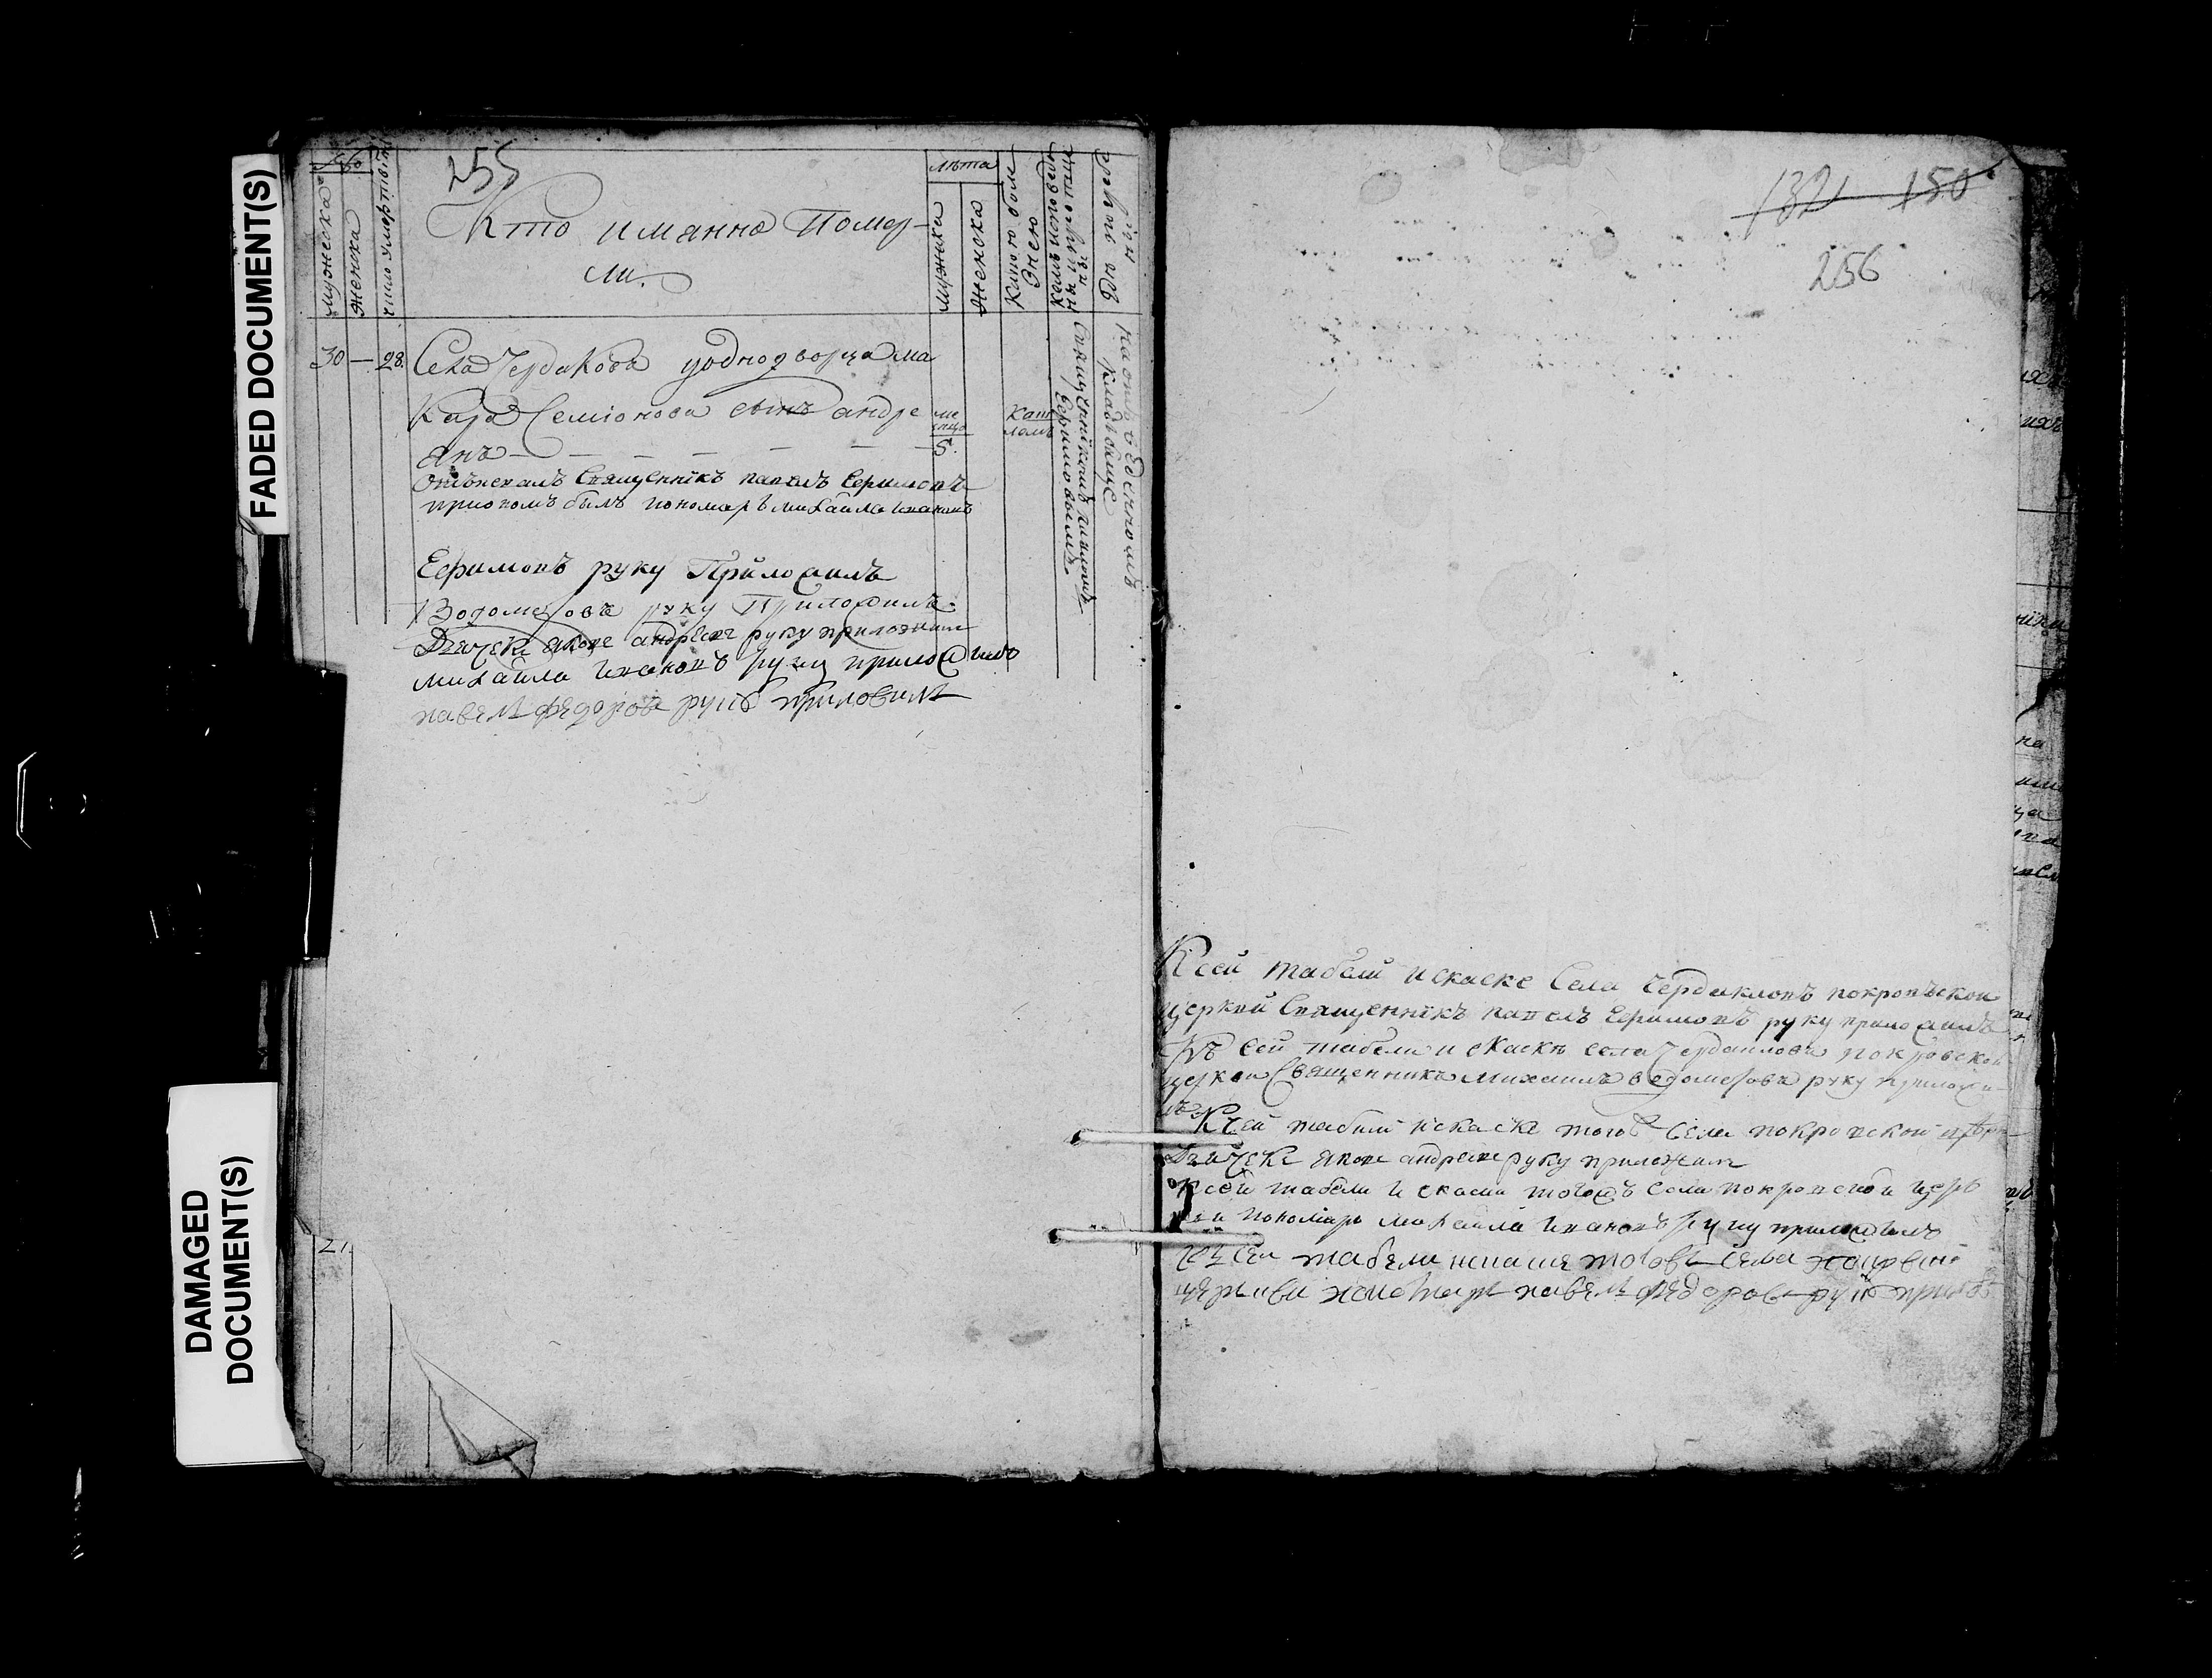 FADED DOCUMENT(S)
DAMAGED
DOCUMENT(S)
255
№
мужеска
женска
число умертвія
Кто иманно Помер-
ли.
лѣта
мужеска
женска
Какою бол
Знею
Кемъ исповеда
ны и приобще
ны
Гдѣ погребе
ны
30 — 28.
Села Чердакова уоднодворца Ма
Кара Семіонова сынъ андре
янъ — — — — — —
ме
сяцо
5.
Каш
лемъ
Священникомъ павломъ
Ефимовымъ
на отведенномъ
кладбище
Отпевалъ Священникъ павелъ Ефимовъ
притомъ былъ пономарь михаила ивановъ
Ефимовъ руку Приложилъ
Водомеровъ руку Приложилъ
Дьячекъ яковъ андреевъ руку приложилъ
михаила ивановъ руку приложилъ
павелъ федоровъ руку приложилъ
21
132 150
256
К сей табели искаске Села Чердакловъ покровъской
церкви Священникъ павелъ Ефимовъ руку приложилъ
Къ сей табели и скаскѣ села Чердаклова покровской
церкви Священникъ Михаилъ водомеровъ руку приложи
лъ
К сей табели искаске тогожъ села покровской церкви
Дьячекъ яковъ андреевъ руку приложилъ
К сей табели и скаски тогожъ села покровской церк
ви пономарь михаила ивановъ руку приложилъ
къ сей табели искаске тогожъ села покровской
церкви пономарь павелъ федоровъ руку прилож